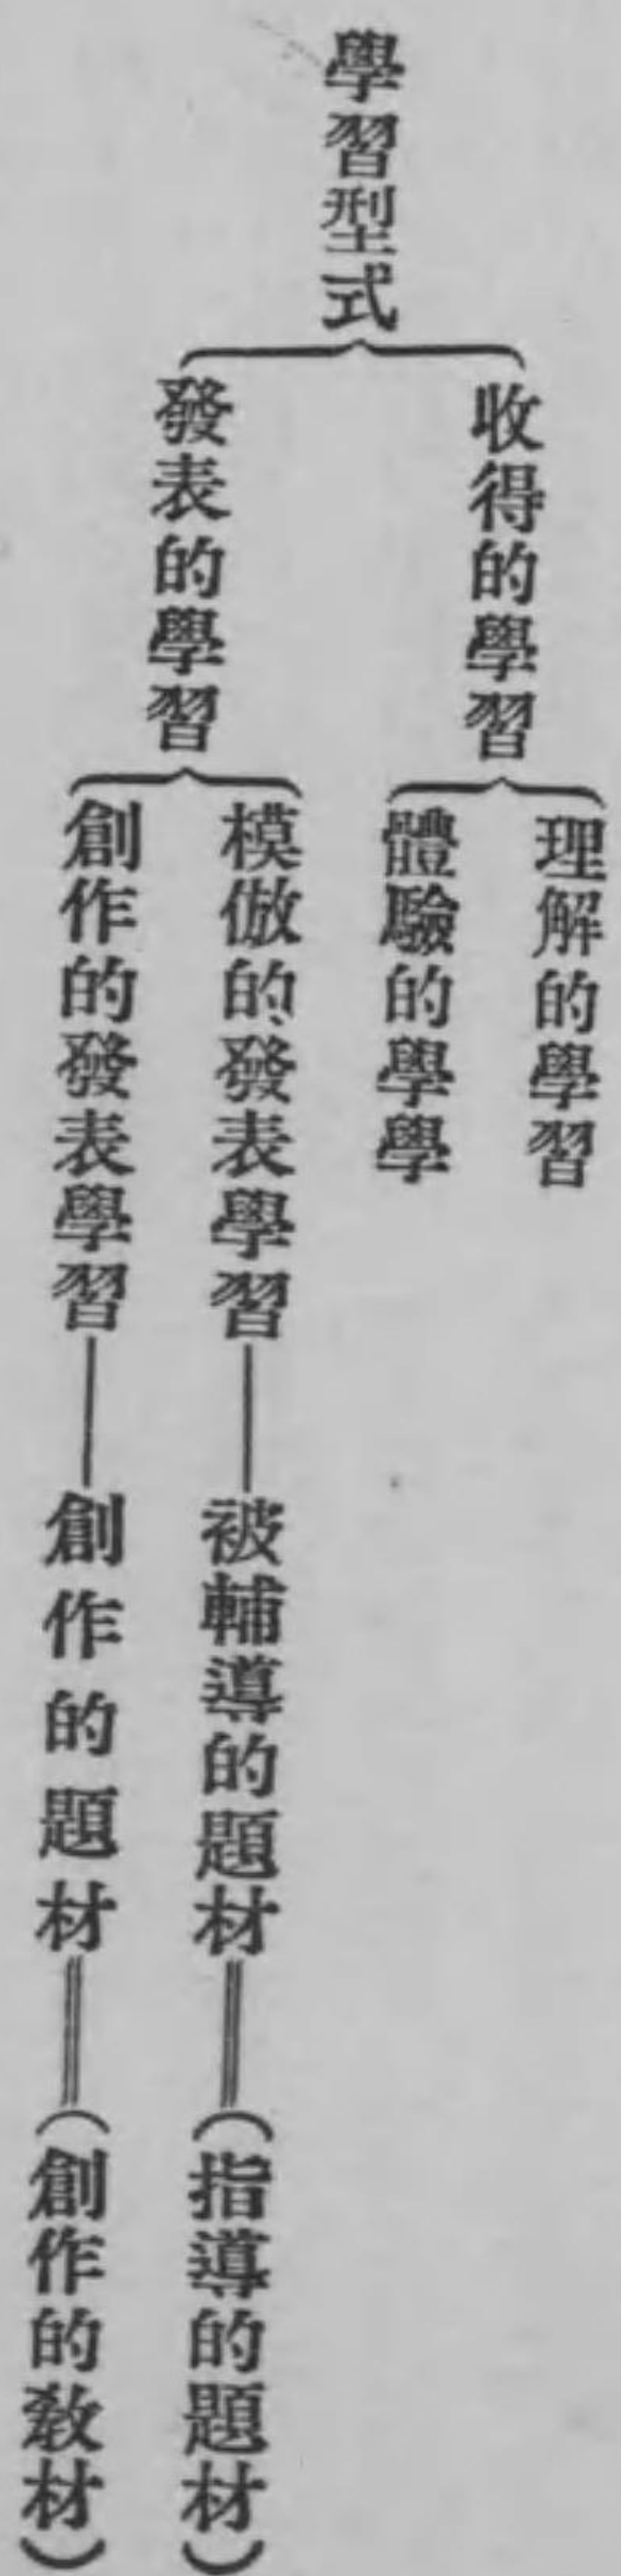 學習型式
收得的學習
理解的學習
體驗的學學
發表的學習
模倣的發表學習――被輔導的題材==(指導的題材)
創作的發表學習――創作的題材==(創作的教材)